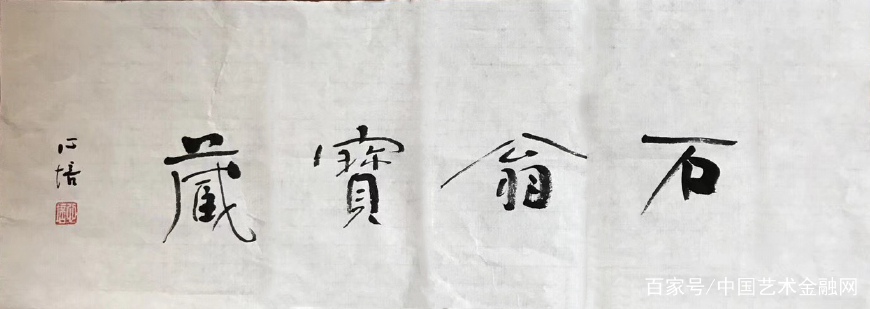 石翁寶藏
心培
百家号/中国艺术金融网